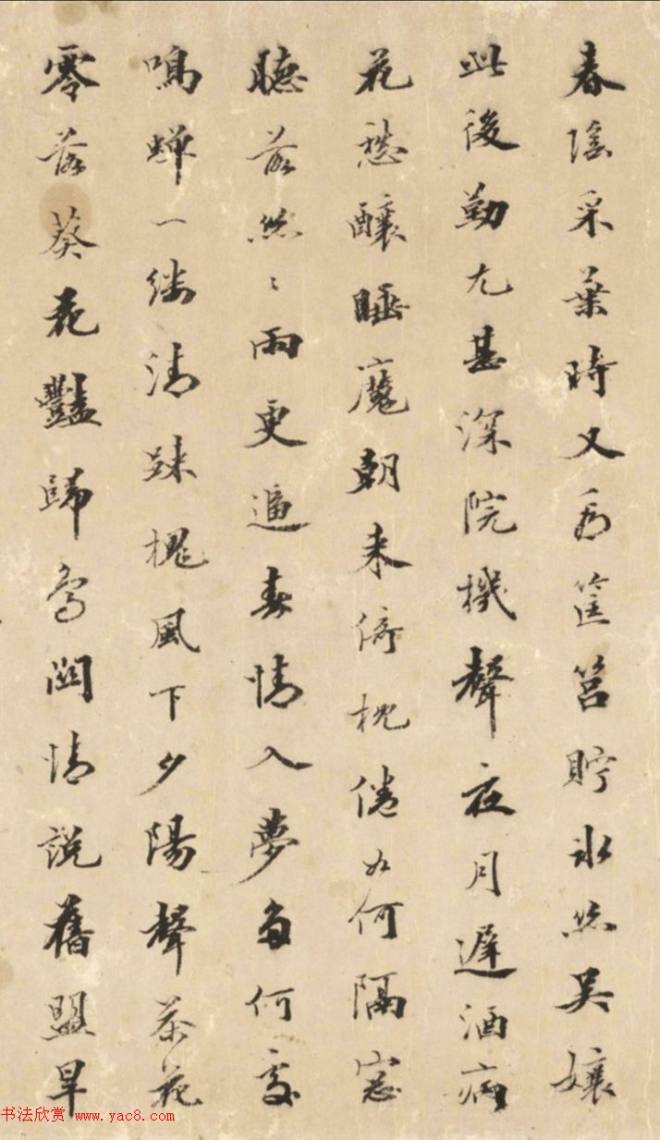 春陰采葉時又為筐筥貯冰絲吳孃
此後勤尤甚深院機聲夜月遲酒病
花愁釀睡魔朝來倚枕倦如何隔窓
聽落絲〻雨更逼春情入夢多何處
鳴蟬一縷清疎槐風下夕陽聲茶花
零落葵花豔歸鳥關情說舊盟早
书法欣赏 www.yac8.com